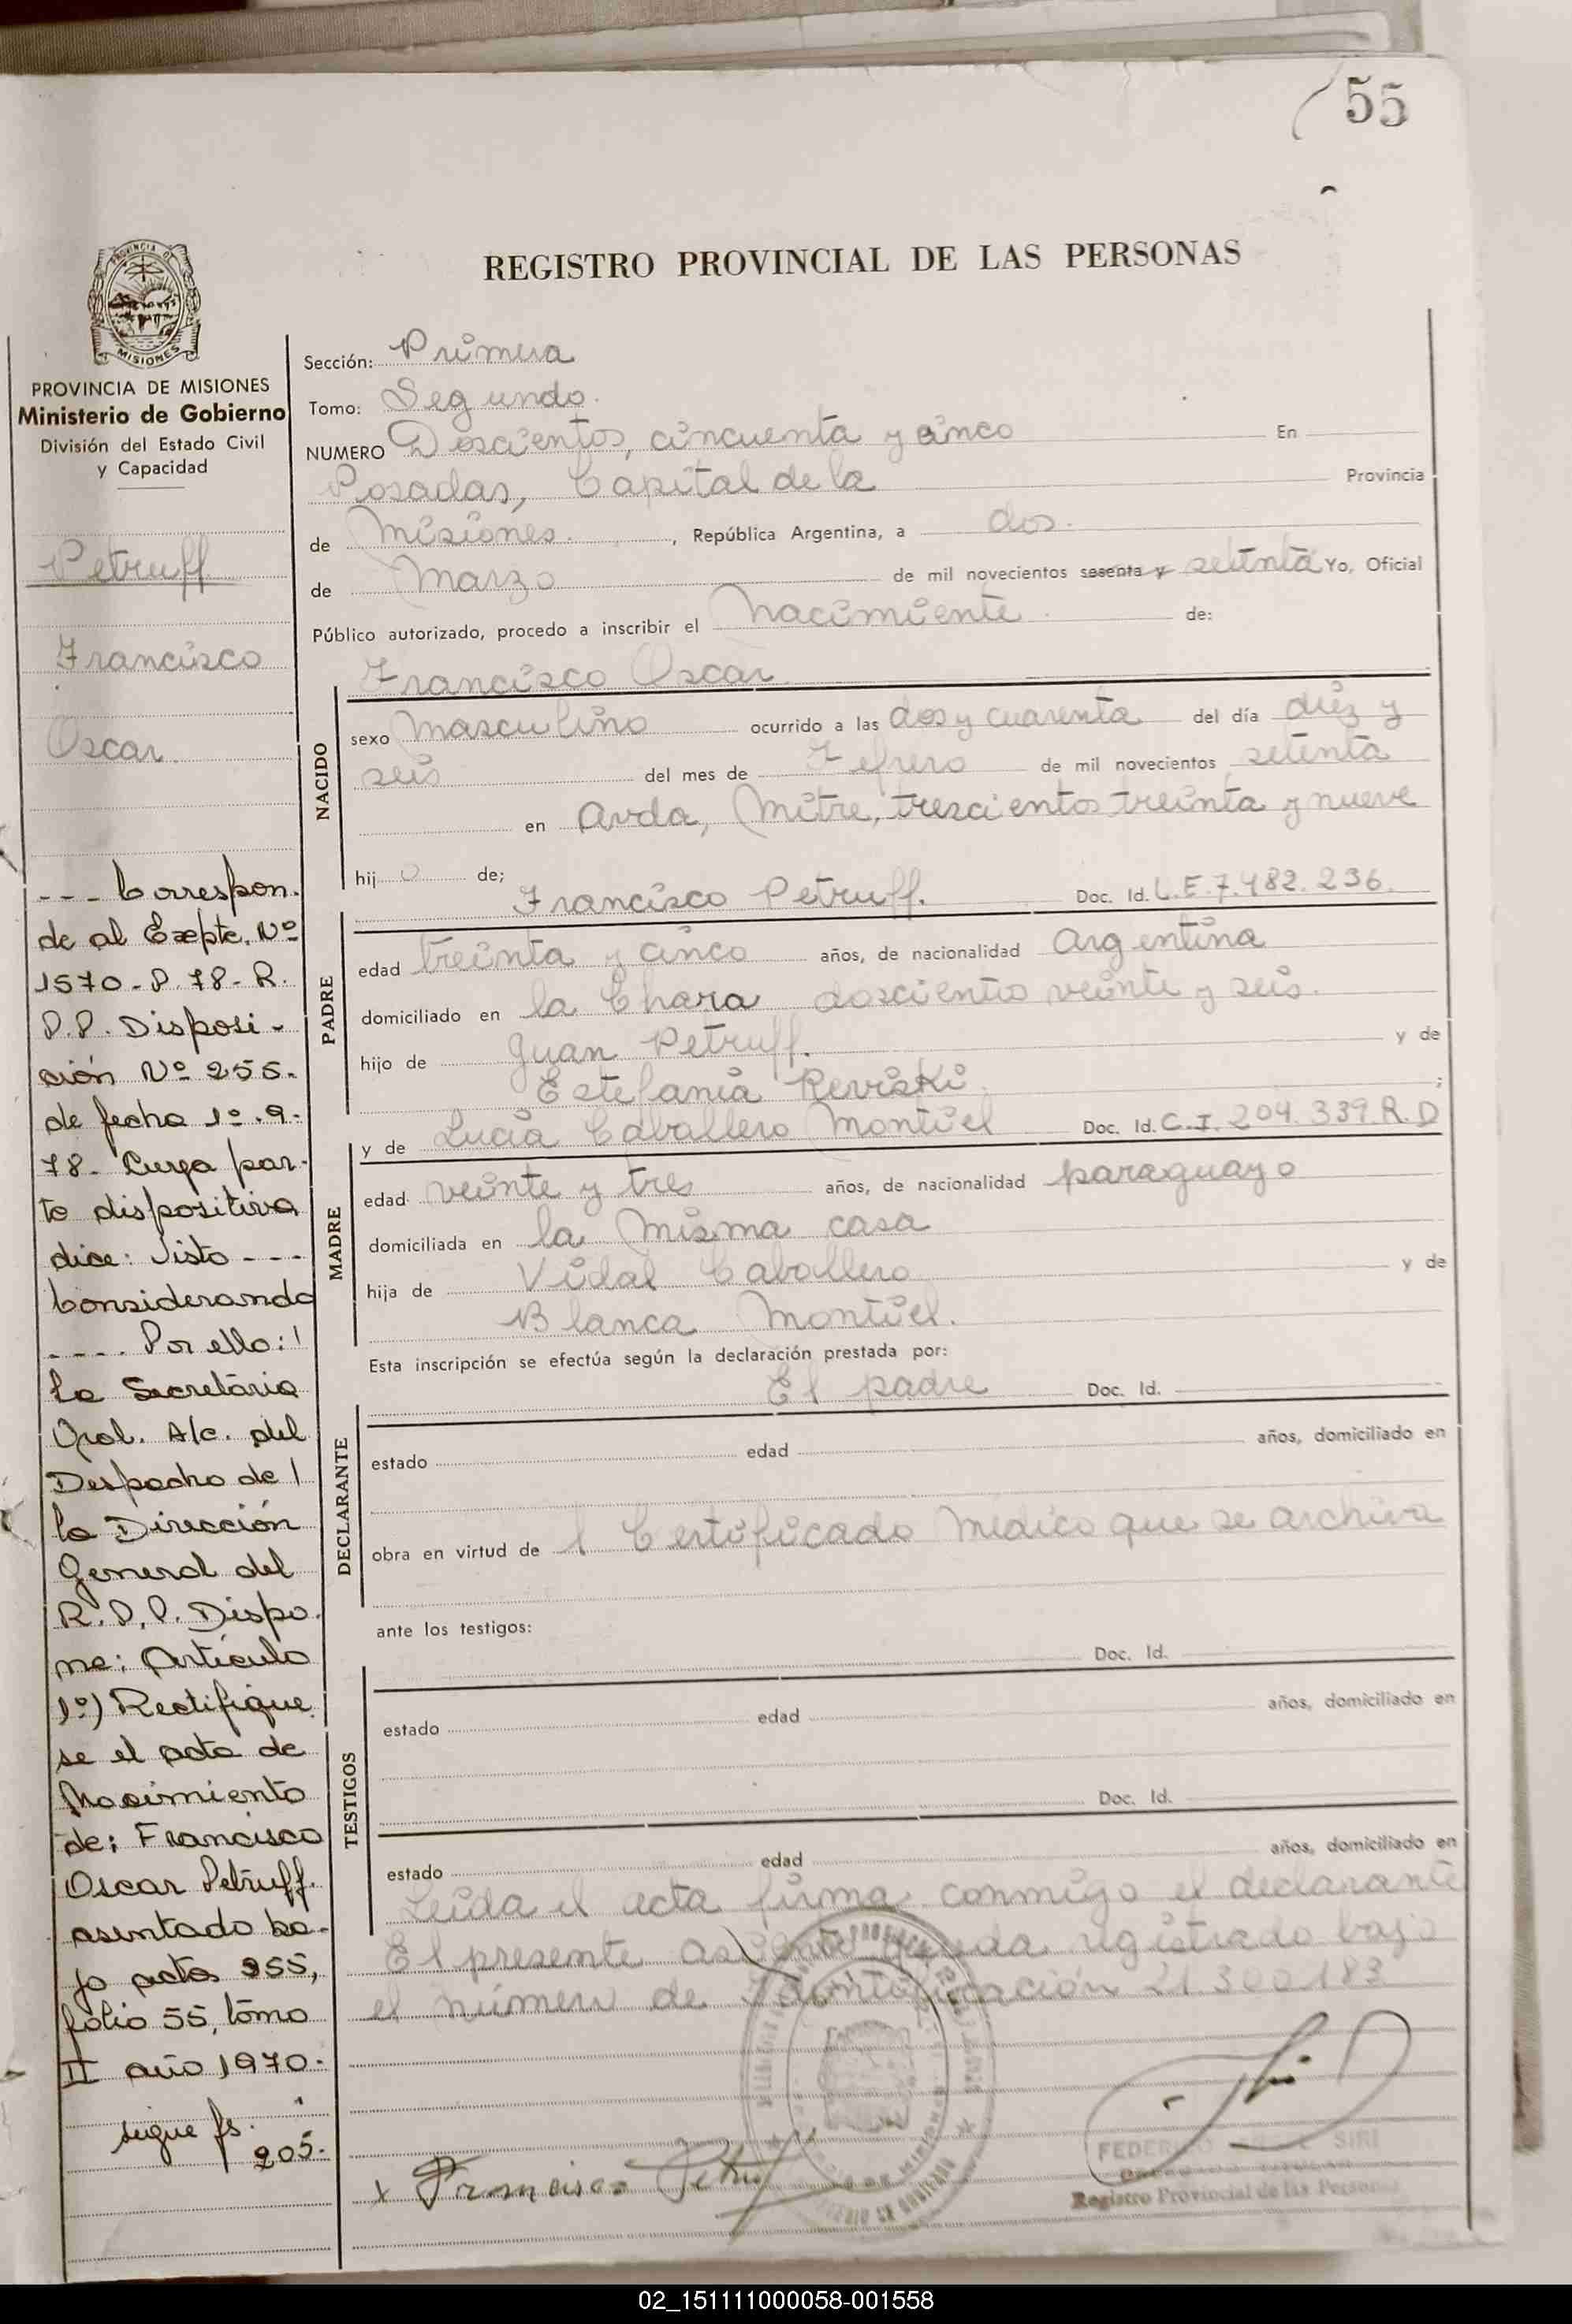 55
REGISTRO PROVINCIAL DE LAS PERSONAS
MISIONES
PROVINCIA DE MISIONES
Ministerio de Gobierno
División del Estado Civil
y Capacidad
Petruff
Francisco
Oscar
--- Correspon-
de al Expte. Nº
1570-P-78-R.
P.P. Disposi-
ción Nº 255-
de fecha 1º-9-
78- Cuya par-
te dispositiva
dice: Visto ---
Considerando
---- Por ello:
La Secretaria
Gral. A/c. del
Despacho de
la Dirección
General del
R.P.P. Dispo-
ne: Artículo
1º) Rectifique
se el acta de
Nacimiento
de: Francisco
Oscar Petruff.
asentado ba-
jo acta 255,
folio 55, tomo
II año 1970-
sigue fs.
205-
Sección: Primera
Tomo: Segundo
NUMERO Doscientos, cincuenta y cinco En
Posadas, Capital de la Provincia
de Misiones. , República Argentina, a dos
de Marzo de mil novecientos sesenta y setenta Yo, Oficial
Público autorizado, procedo a inscribir el nacimiento de:
Francisco Oscar
NACIDO
sexo masculino ocurrido a las dos y cuarenta del día diez y
seis del mes de Febrero de mil novecientos setenta
en Avda, Mitre, trescientos treinta y nueve
hij o de;
Francisco Petruff. Doc. Id. L.E. 7.482.236.
PADRE
edad treinta y cinco años, de nacionalidad argentina
domiciliado en la Chara doscientos veinte y seis.
hijo de Juan Petruff. y de
Estefania Reviski ;
y de Lucia Caballero Montiel Doc. Id. C.I. 204.339.R.D
MADRE
edad veinte y tres años, de nacionalidad paraguayo
domiciliada en la misma casa
hija de Vidal Caballero y de
Blanca Montiel.
Esta inscripción se efectúa según la declaración prestada por:
El padre Doc. Id.
DECLARANTE
estado edad años, domiciliado en
obra en virtud de l Certificado Medico que se archiva
ante los testigos:
Doc. Id.
TESTIGOS
estado edad años, domiciliado en
Doc. Id.
estado edad años, domiciliado en
Leida el acta firma conmigo el declarante
El presente asiento queda registrado bajo
el número de Identificación 21.300.183
x Francisco Petruff
FEDERICO SIRI
Registro Provincial de las Personas
02_151111000058-001558